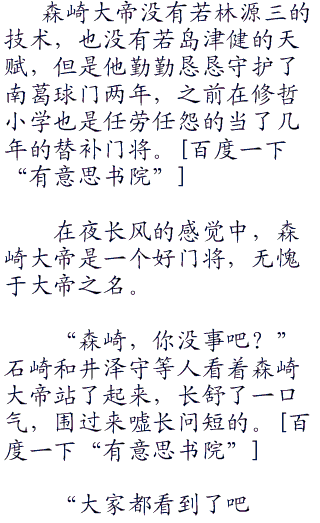 森崎大帝没有若林源三的
技术，也没有若岛津健的天
赋，但是他勤勤恳恳守护了
南葛球门两年，之前在修哲
小学也是任劳任怨的当了几
年的替补门将。[百度一下
“有意思书院”]
在夜长风的感觉中，森
崎大帝是一个好门将，无愧
于大帝之名。
“森崎，你没事吧？”
石崎和井泽守等人看着森崎
大帝站了起来，长舒了一口
气，围过来嘘长问短的。[百
度一下“有意思书院”]
“大家都看到了吧